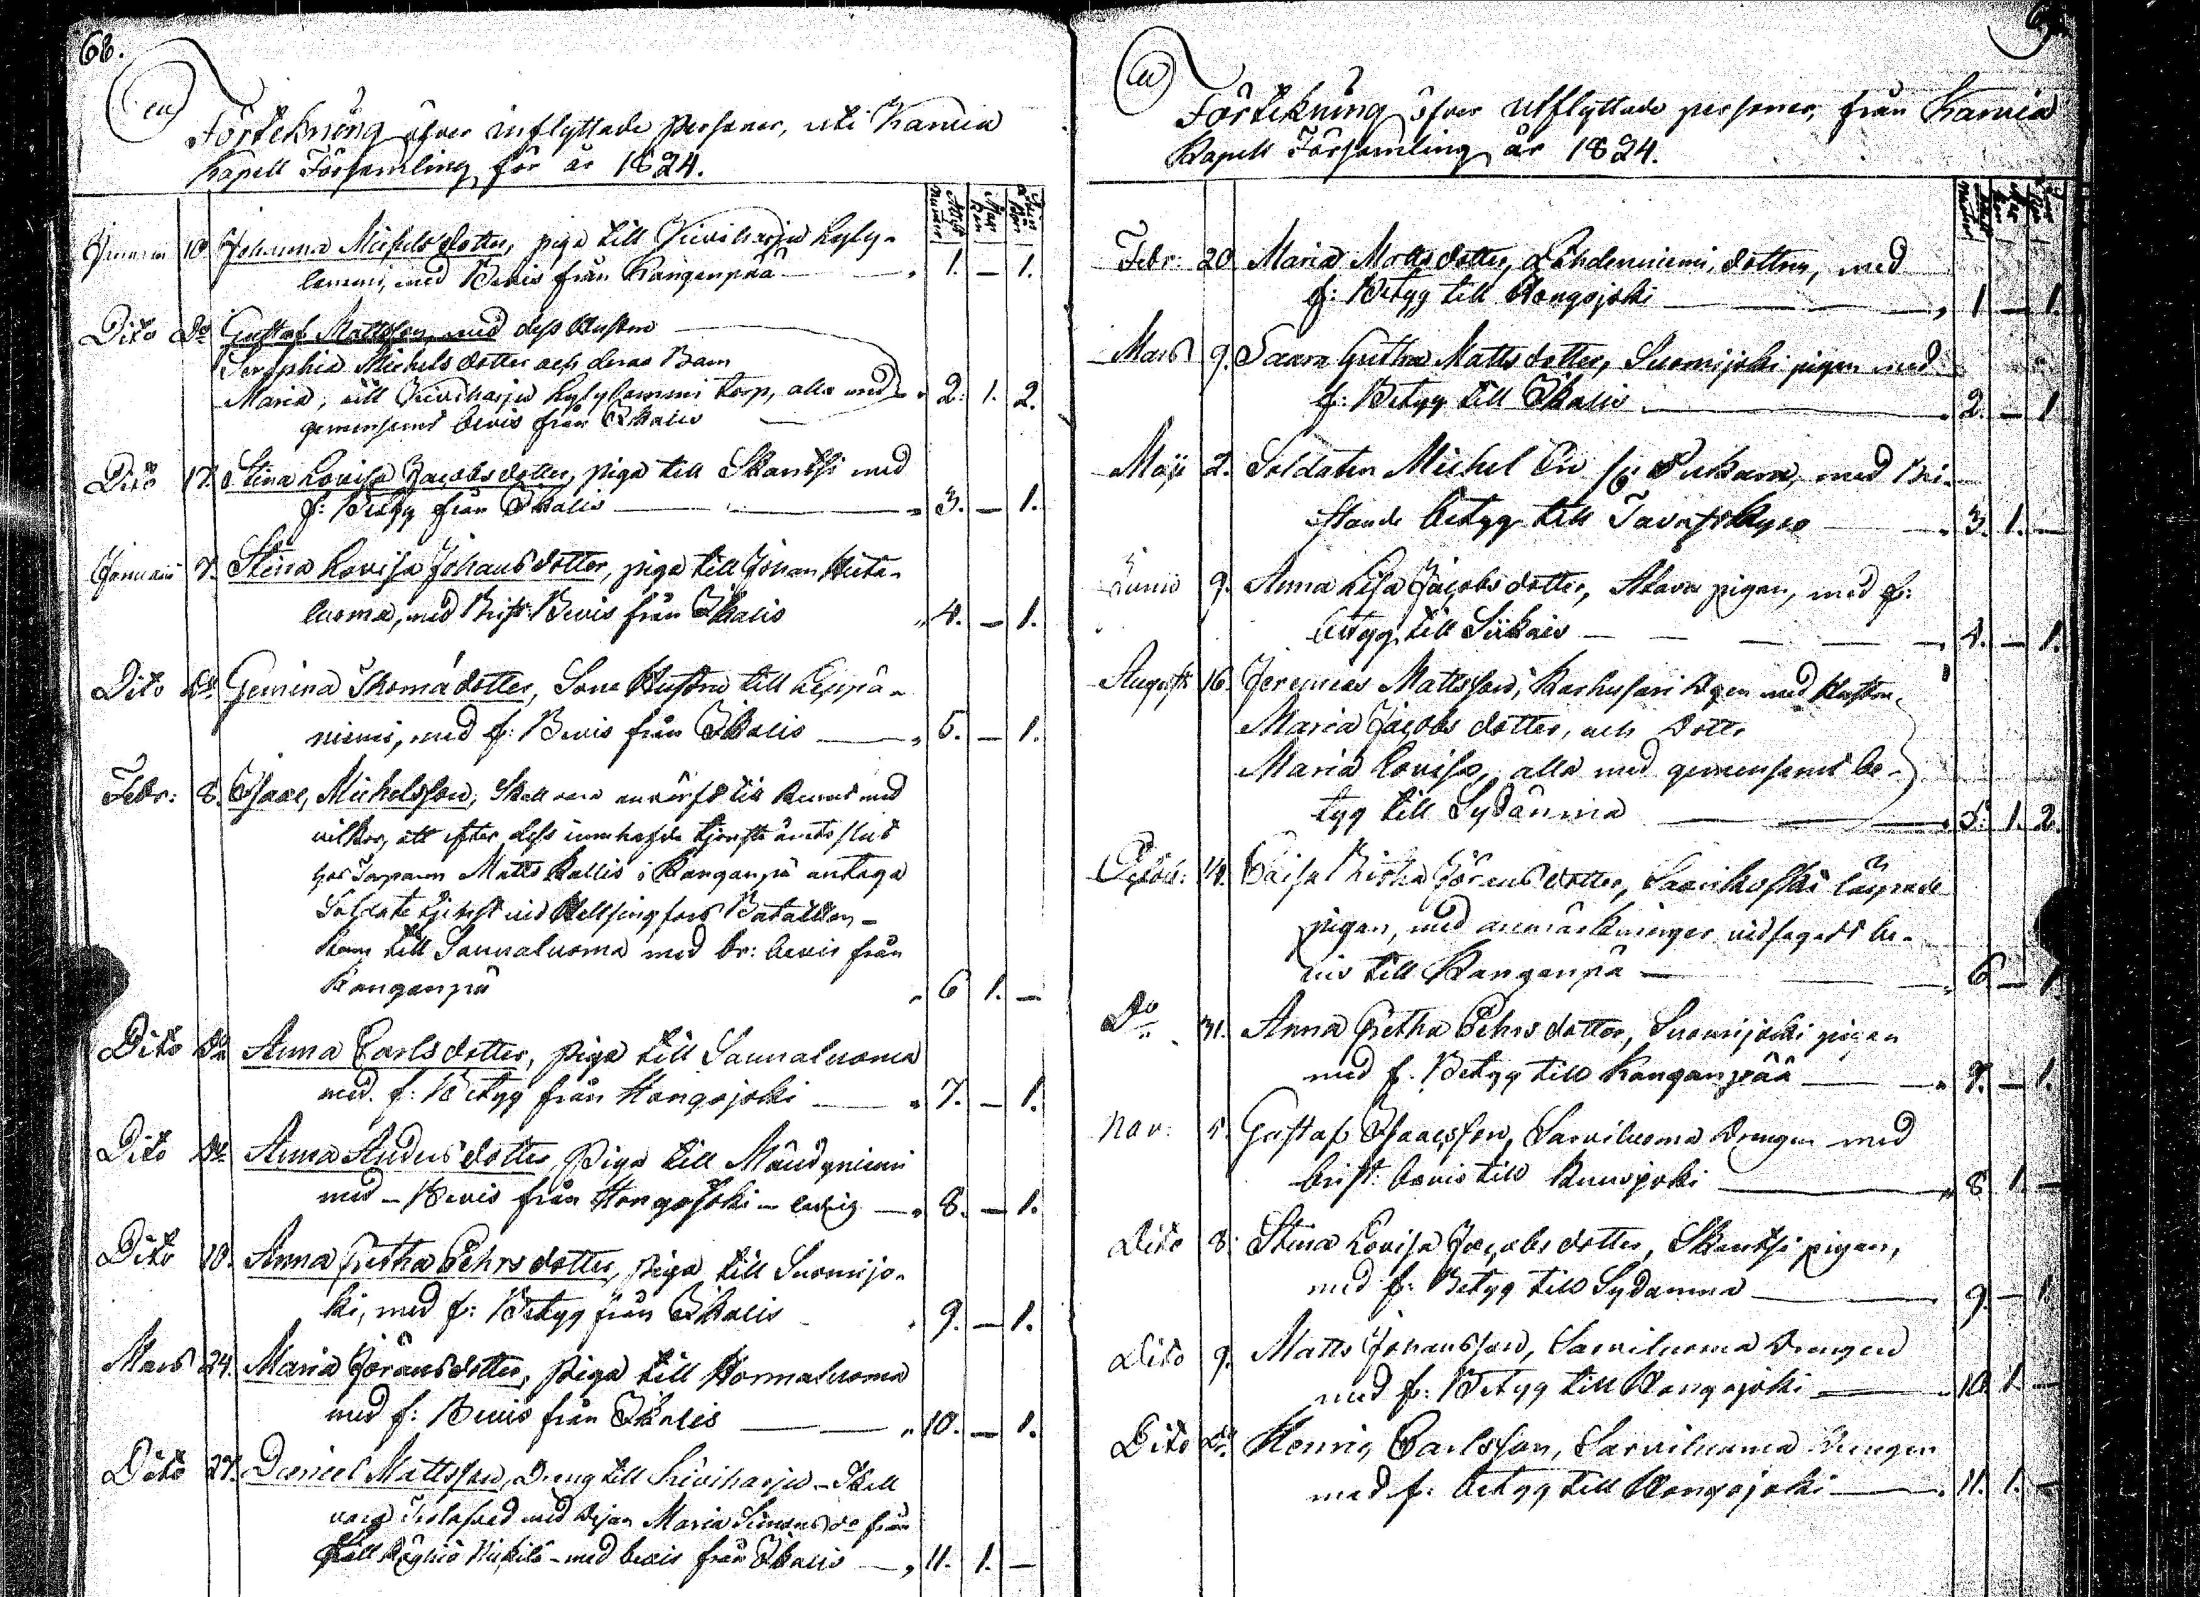 68.
Förtekning öfver inflyttade Personer, uti Karvia
Kapell Församling för år 1824.
Attestens Numer Mankön Qvinkön
Januarii 10 Johanna Michelsdotter, piga till Kiviharju Kyly-
lammi, med Bevis från Kangenpää — " 1. — 1.
Dito Do Gustaf Mattsson, med dess Hustru
Serephia Michels dotter och deras Barn
Maria, till Kiviharju Kylylammi torp, alla med " 2. 1. 2.
gemensamt bevis från Ikalis
Dito 17. Stina Lovisa Jacobsdotter, piga till Skantsi med
f: Betyg från Ikalis — " 3. — 1.
Januarii 7. Stina Lovisa Johansdotter, piga till Johan Hieta-
luoma, med Brist: Bevis från Ikalis " 4. — 1.
Dito Do Gemina Thomädotter, Sone Hustru till Leppä-
niemi, med f: Bevis från Ikalis — " 5. — 1.
Febr: 8. Isaac Michelsson, Skall vara
vilkor, att efter dess innehafde tjenste slut
hos Torparen Matts Kallis i Kanganpä antaga
Soldate tjenst vid Hellsingfors Bataillon -
kom till Sarvaluoma med br: bevis från
Kanganpä " 6 1. —
Dito Do Anna Carlsdotter, piga till Sarvaluoma
med f: Betyg från Hongojoki — " 7. — 1.
Dito Do Anna Andersdotter, Piga till Mändyniemi
med — Bevis från Hongojoki — ledig — " 8. — 1.
Dito 10. Anna Gretha Pehrsdotter, Piga till Suomijo-
ki, med f: Betyg från Ikalis " 9. — 1.
Mars 24. Maria Göransdotter, Piga till Honnaluoma
med f: Bevis från Ikalis — " 10. — 1.
Dito 27. Daniel Mattsson, Dreng till Kiviharju - Skall
vara Trolofved med Pigan Maria Simonsdr från
med bevis från Ikalis — " 11. 1. —
Förtekning öfver Utflyttade personer, från Karvia
Kapell Församling år 1824.
Febr: 20 Maria Mattsdotter, Lähdenniemi, dottren, med
f: Betyg till Hongojoki — " 1 — 1.
Mars 9. Saara Gretha Mattsdotter, Suomijoki pigan med
f: Betyg till Ikalis — " 2. — 1
Maji 2. Soldaten Michel Pukara, med Bri-
stande betyg till Tavastkyro — " 3. 1. —
Junio 9. Anna Lisa Jacobsdotter, Alava pigan, med f:
betyg till Siikais — " 4. — 1.
Augusti 16. Jeremias Mattsson, Karhusari med Hustru
Maria Jacobs dotter, och Dotter
Maria Lovisa, alla med gemensamt be-
tyg till Sydänma — " 5. 1. 2.
October: 14. Caisa Göransdotter, Sarvikoski
pigan, med anmärkninger vidfogadt be-
vis till Kanganpä — " 6 — 1.
Do 31. Anna Gretha Pehrsdotter, Suomijoki pigan
med f. Betyg till Kanganpää — " 7. — 1.
Nov: 5. Gustaf Isaacsson, Sarviluoma Drengen med
brist: bevis till — " 8 1. —
Dito 8. Stina Lovisa Jacobsdotter, Skantsi pigan,
med f: Betyg till Sydänma — 9. — 1
Dito 9. Matts Johansson, Sarviluoma Drengen
med f: Betyg till Hongojoki — " 10 1. —
Dito Do Henric Carlsson, Sarviluoma Drengen
med f: betyg till Hongojoki — " 11. 1. —